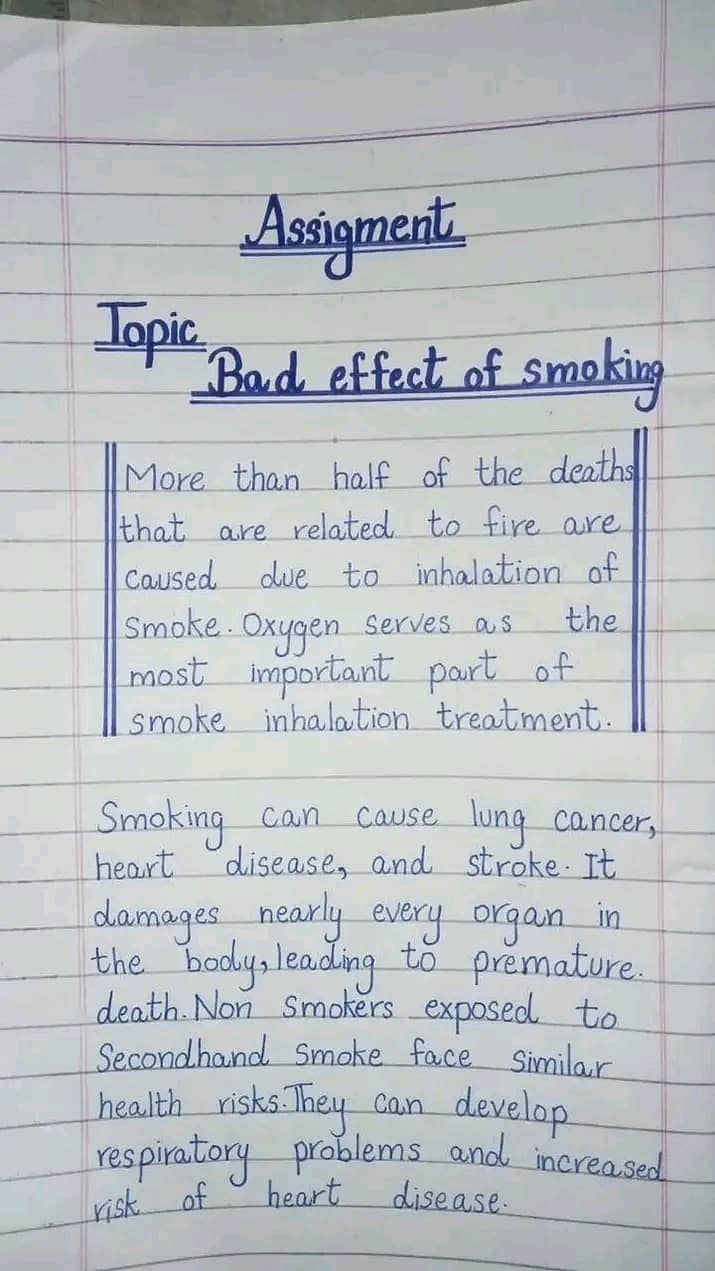 Assigment
Topic
Bad effect of smoking
More than half of the deaths
that are related to fire are
caused due to inhalation of
Smoke. Oxygen serves as the
most important part of
smoke inhalation treatment.
Smoking can cause lung cancer,
heart disease, and stroke. It
damages nearly every organ in
the body, leading to premature.
death. Non Smokers exposed to
Secondhand Smoke face Similar
health risks. They can develop
respiratory problems and increased
risk of heart disease.